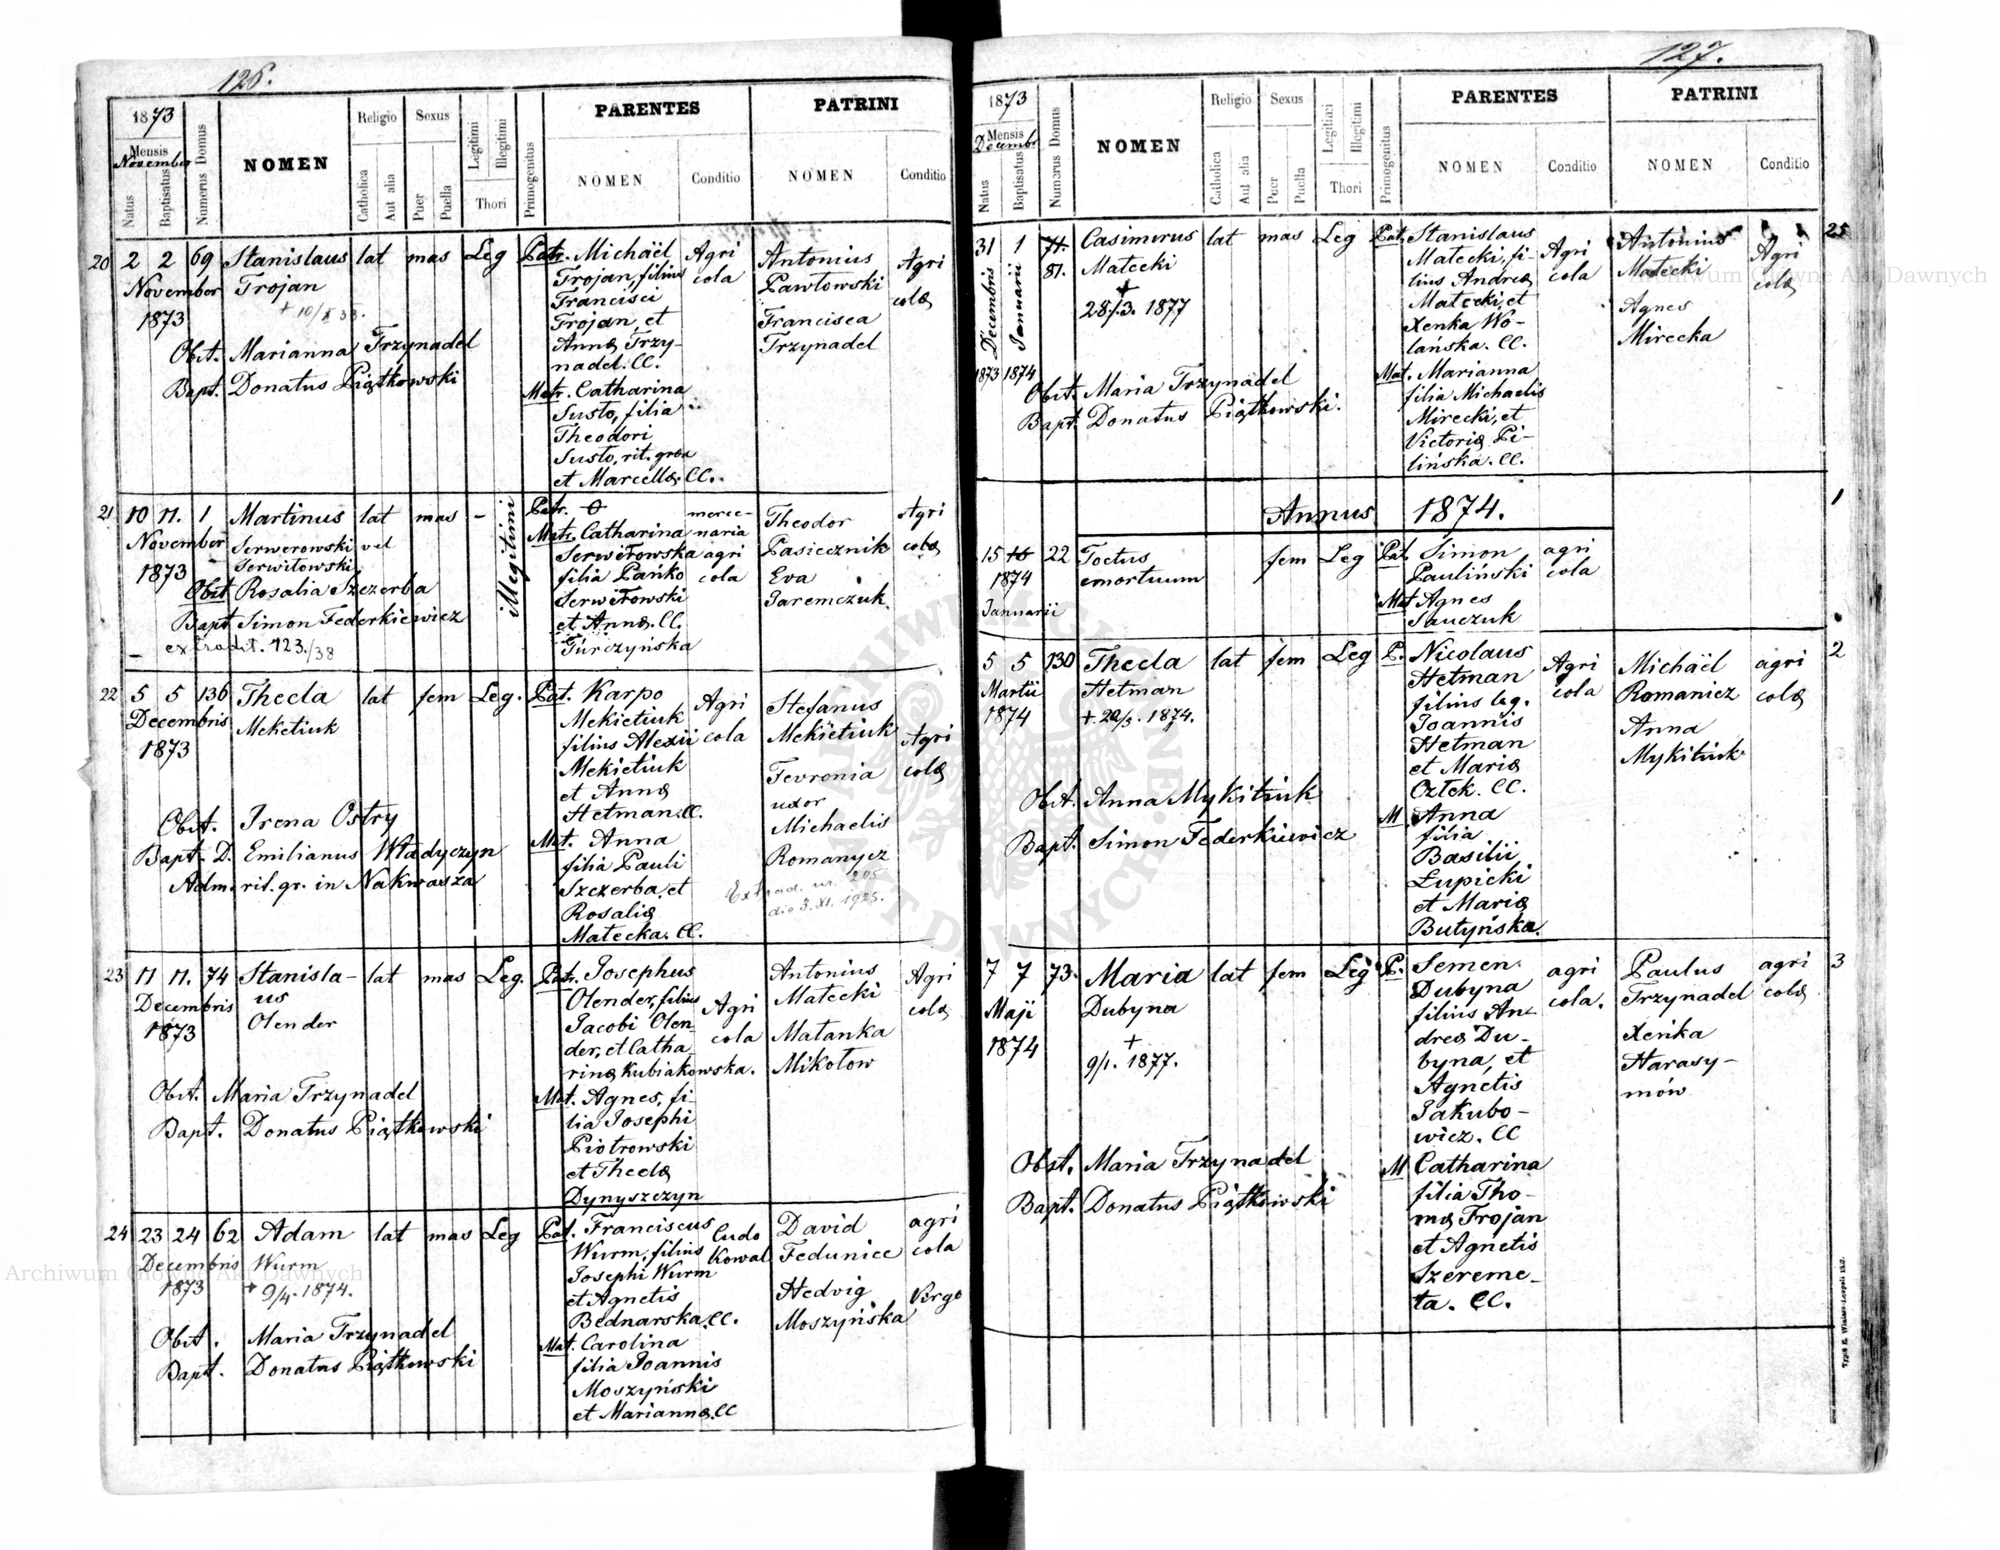 126.
1873
Mensis
November
Natus
Baptisatus
Numerus Domus
NOMEN
Religio
Catholica
Aut alia
Sexus
Puer
Puella
Legitimi
Illegitimi
Thori
Primogenitus
PARENTES
NOMEN
Conditio
PATRINI
NOMEN
Conditio
20 2 2 69 Stanislaus lat mas Leg Patr. Michaël Agri Antonius Agri
November Trojan Trojan, filius cola Pawłowski colæ
1873 Francisci Francisca
Trojan, et Trzynadel
Obst. Marianna Trzynadel Annæ Trzy-
Bapt. Donatus Piątkowski nadel. CC.
Matr. Catharina
Susto, filia
Theodori
Susto, rit. græc
et Marcellæ. CC.
21 10 11. 1 Martinus lat mas - Illegitimi Patr. O merce- Theodor Agri
November Serwerowski vel Matr. Catharina naria Pasiecznik colæ
1873 Serwitowski Serwitowska agri Eva
Obst Rosalia Szczerba filia Pańko cola Jaremczuk
Bapt Simon Federkiewicz Serwitowski
extradit. 123/38 et Annæ. CC.
Turczyńska
22 5 5 136 Thecla lat fem Leg. Pat. Karpo Agri Stefanus
Decembris Meketiuk Mekietiuk cola Mekietiuk Agri
1873 filius Alexii Fevronia colæ
Mekietiuk uxor
et Annæ Michaelis
Hetman. CC. Romanycz
Obst. Irena Ostry Mat. Anna
Bapt. D. Emilianus Władyczyn filia Pauli
Adm. rit. gr. in Nakwasza Szczerba et
Rosaliæ
Małecka. CC.
Extrad. nr. 205
dio 3. XI. 1925.
23 11 11. 74 Stanisla- lat mas Leg. Patr. Josephus Antonius Agri
Decembris us Olender, filius Agri Małecki colæ
1873 Olender Jacobi Olen- cola Matanka
der, et Catha Mikołow
rinæ Kubiakowska.
Obst. Maria Trzynadel Mat. Agnes, fi-
Bapt. Donatus Piątkowski lia Josephi
Piotrowski
et Theclæ
Dynyszczyn
24 23 24 62 Adam lat mas Leg Pat. Franciscus Ludo David agri
Decembris Wurm Wurm, filius Kowal Fedunice cola
1873 + 9/4. 1874. Josephi Wurm Hedvig Virgo
et Agnetis Moszyńska
Bednarska. CC.
Obst. Maria Trzynadel Mat. Carolina
Bapt. Donatus Piątkowski filia Joannis
Moszyński
et Mariannæ. CC
127.
1873
Mensis
Decembr
Natus
Baptisatus
Numerus Domus
NOMEN
Religio
Catholica
Aut alia
Sexus
Puer
Puella
Legitimi
Illegitimi
Thori
Primogenitus
PARENTES
NOMEN
Conditio
PATRINI
NOMEN
Conditio
31 1 71. Casimirus lat mas Leg Pat. Stanislaus Antonius 25
Decembris Januarii 81. Małecki Małecki, fi- Agri Małecki Agri
+ lius Andreæ cola Agnes colæ
28/3. 1877 Małecki, et Mirecka
Xenka Wo-
lańska. CC.
1873 1874 Mat. Marianna
Obst. Maria Trzynadel filia Michaelis
Bapt. Donatus Piątkowski. Mirecki, et
Victoriæ Pi-
lińska. CC.
Annus 1874. 1
15 16 22 Foetus fem Leg Pat. Simon agri
1874 emortuum Pauliński cola
Januarii Mat Agnes
Sauczuk
5 5 130 Thecla lat fem Leg P. Nicolaus Agri Michaël agri 2
Martii Hetman Hetman cola Romanicz colæ
1874 +. 20/3. 1874. filius leg. Anna
Joannis Mykitiuk
Hetman
et Mariæ
Człek. CC.
Obst. Anna Mykitiuk M Anna
Bapt. Simon Federkiewicz filia
Basilii
Łupicki
et Mariæ
Butyńska.
7 7 73. Maria lat fem Leg P. Semen agri Paulus agri 3
Maji Dubyna Dubyna cola. Trzynadel colæ
1874 + filius An- Xeńka
9/1. 1877. dreæ Du- Harasy-
byna, et mów
Agnetis
Jakubo-
wicz. CC
Obst. Maria Trzynadel M Catharina
Bapt. Donatus Piątkowski filia Tho-
mæ Trojan
et Agnetis
Szereme-
ta. CC.
Archiwum Główne Akt Dawnych
Archiwum Główne Akt Dawnych
ARCHIWUM GŁÓWNE AKT DAWNYCH